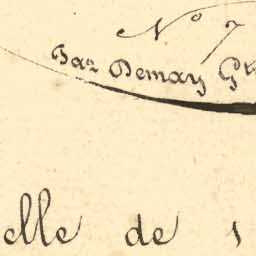 No 7
Par Demay G
elle de 1